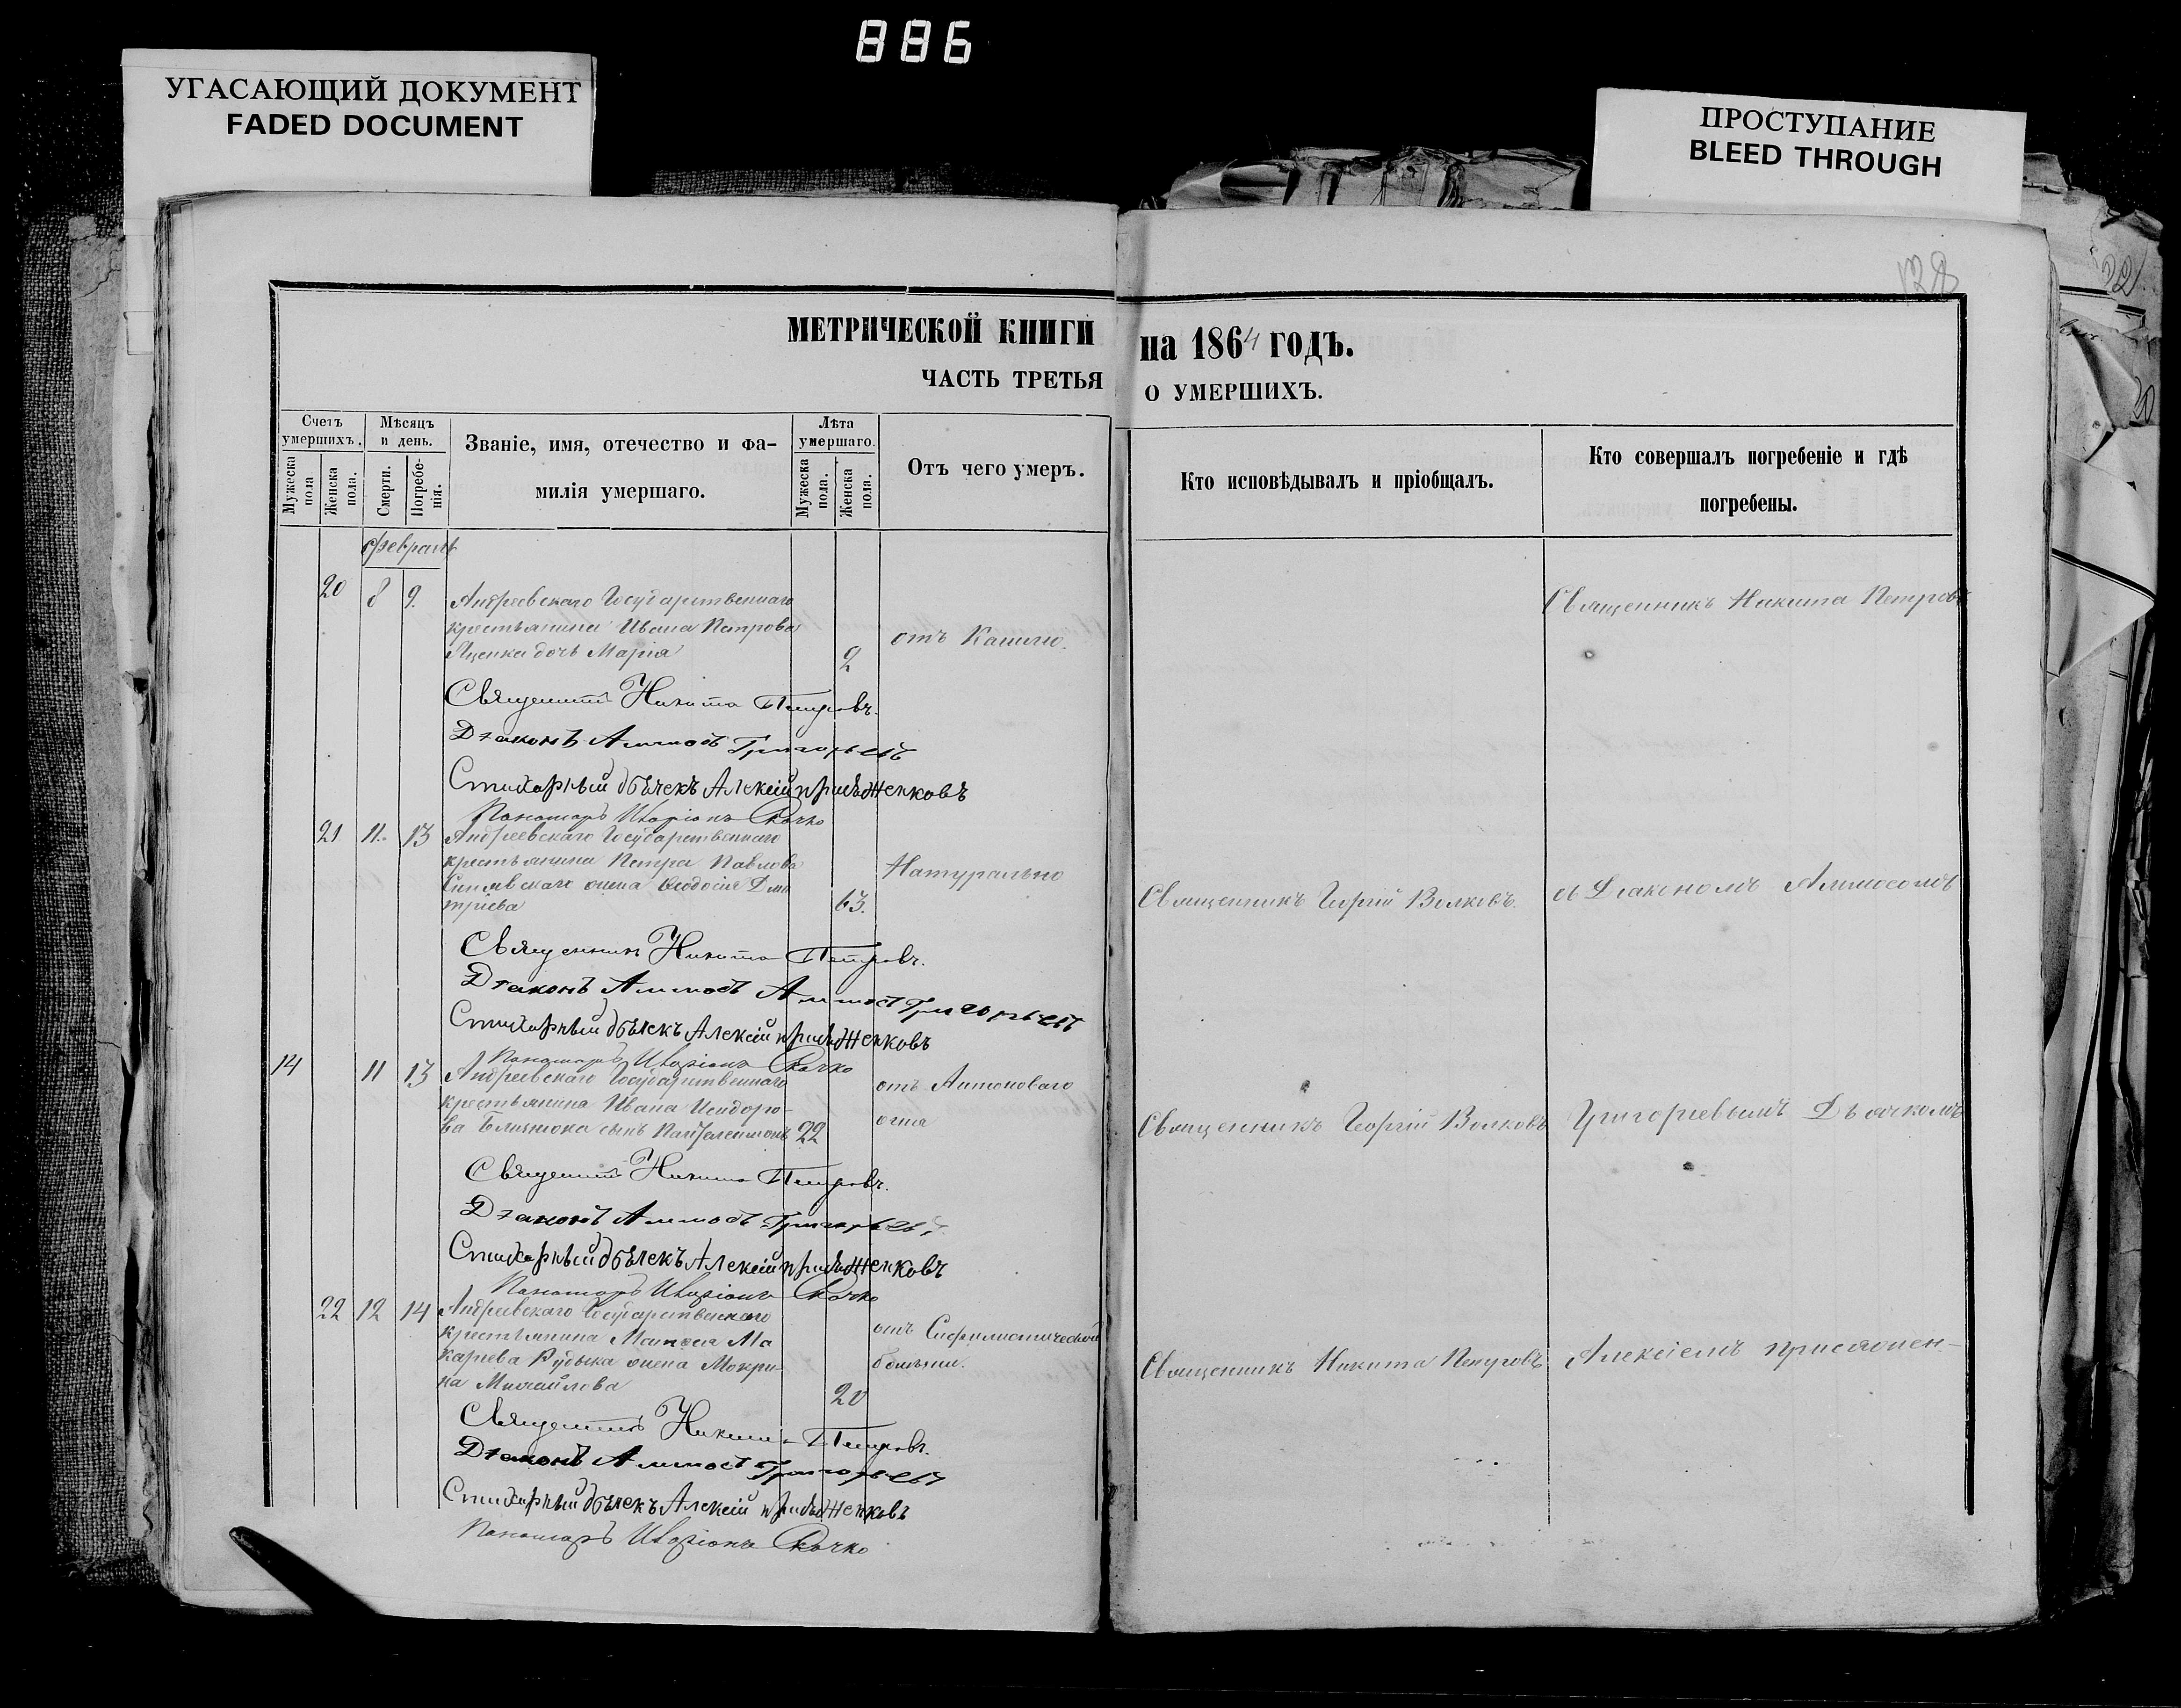 886
УГАСАЮЩИЙ ДОКУМЕНТ
FADED DOCUMENT
ПРОСТУПАНИЕ
BLEED THROUGH
138
22
20
МЕТРИЧЕСКОЙ КНИГИ на 1864 ГОДЪ.
ЧАСТЬ ТРЕТЬЯ О УМЕРШИХЪ.
Счетъ умершихъ.
Мужеска пола
Женска пола.
Мѣсяцъ и день.
Смерти.
Погребенія.
Званіе, имя, отечество и фа-
милія умершаго.
Лѣта умершаго.
Мужеска пола.
Женска пола.
Отъ чего умеръ.
Кто исповѣдывалъ и пріобщалъ.
Кто совершалъ погребеніе и гдѣ
погребены.
Февраль
20 8 9. Андреевскаго Государственнаго
крестьянина Ивана Петрова
Яценка дочь Марія
2
отъ Кашлю.
Священникъ Никита Петровъ
Священникъ Никита Петровъ.
Діаконъ Аммосъ Григорьевъ
Стихарный дьячекъ Алексій
Пономарь Иларіонъ Скачко
21 11. 13 Андреевскаго Государственнаго
крестьянина Петра Павлова
жена Феодосія Дми
тріева
63.
Натурально
Священникъ Георгій Волковъ.
съ Діакономъ Аммосомъ
Священникъ Никита Петровъ.
Діаконъ Аммосъ Аммосъ Григорьевъ
Стихарный дьячекъ Алексій
Пономарь Иларіонъ Скачко
14 11 13 Андреевскаго Государственнаго
крестьянина Ивана Исидоро-
ва сынъ Пантелеимонъ 22
отъ Антоноваго
огня
Священникъ Георгій Волковъ
Григорьевымъ Дьячкомъ
Священникъ Никита Петровъ.
Діаконъ Аммосъ Григорьевъ
Стихарный дьячекъ Алексій
Пономарь Иларіонъ Скачко
22 12 14 Андреевскаго Государственнаго
крестьянина Матвея Ма
карьева Рудыка жена Мокри-
на Михайлова
20
отъ Сифилистической
болѣзни.
Священникъ Никита Петровъ
Алексіемъ
Священникъ Никита Петровъ.
Діаконъ Аммосъ Григорьевъ
Стихарный дьячекъ Алексій
Пономарь Иларіонъ Скачко